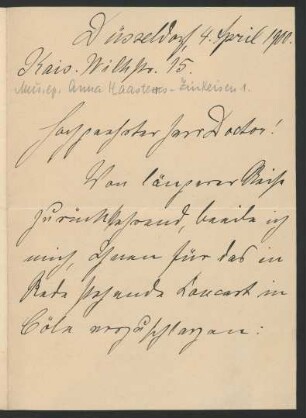 Düsseldorf, 4. April 1900.
Kais. Wilhstr. 15.
Mus. ep. Anna Haasters-Zinkeisen 1.
Hochgeehrter Herr Doctor!
Von längerer Reise
zurückkehrend, beeile ich
mich, Ihnen für das in
Rede stehende Concert in
Cöln vorzuschlagen: